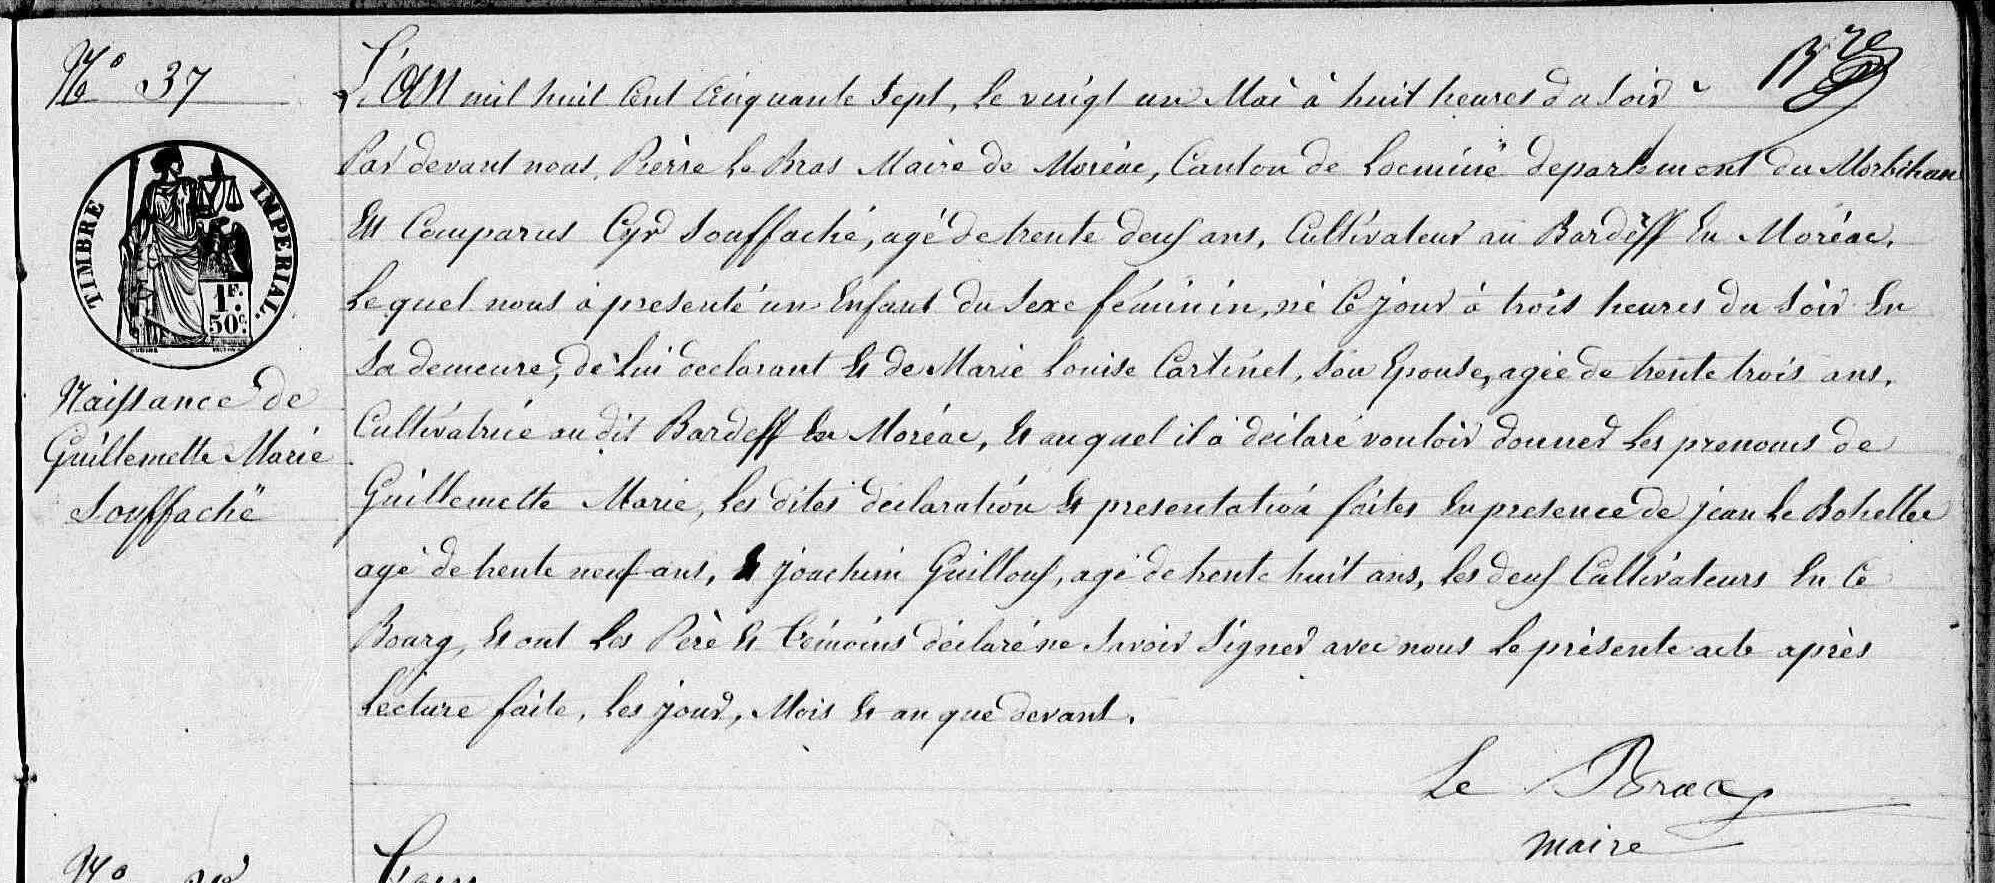 N° 37
TIMBRE IMPERIAL.
1F.
50c.
Naissance de
Guillemette Marie
Souffaché
L'AN mil huit Cent Cinquante Sept, le vingt un Mai à huit heures du Soir
Par devant nous, Pierre Le Bras Maire de Moréac, Canton de Locminé departement du Morbihan
Est Comparus Cyr Souffaché, agé de trente deux ans, Cultivateur au Bardeff En Moréac,
Lequel nous à presenté un Enfant du Sexe féminin, né Ce jour à trois heures du Soir En
Sa demeure, de Lui declarant Et de Marie Louise Cartinel, Son Epouse, agée de trente trois ans,
Cultivatrice au dit Bardeff En Moréac, Et auquel il à déclaré vouloir donner Les prenoms de
Guillemette Marie, Les dites déclaration Et presentation faites En presence de jean Le Bohellec
agé de trente neuf ans, Et joachim Guilloux, agé de trente huit ans, Les deux Cultivateurs En Ce
Bourg, Et ont Les Père Et témoins déclaré ne Savoir Signer avec nous Le présente acte après
Lecture faite, Les jour, Mois Et an que devant.
Le Bras
maire
N°